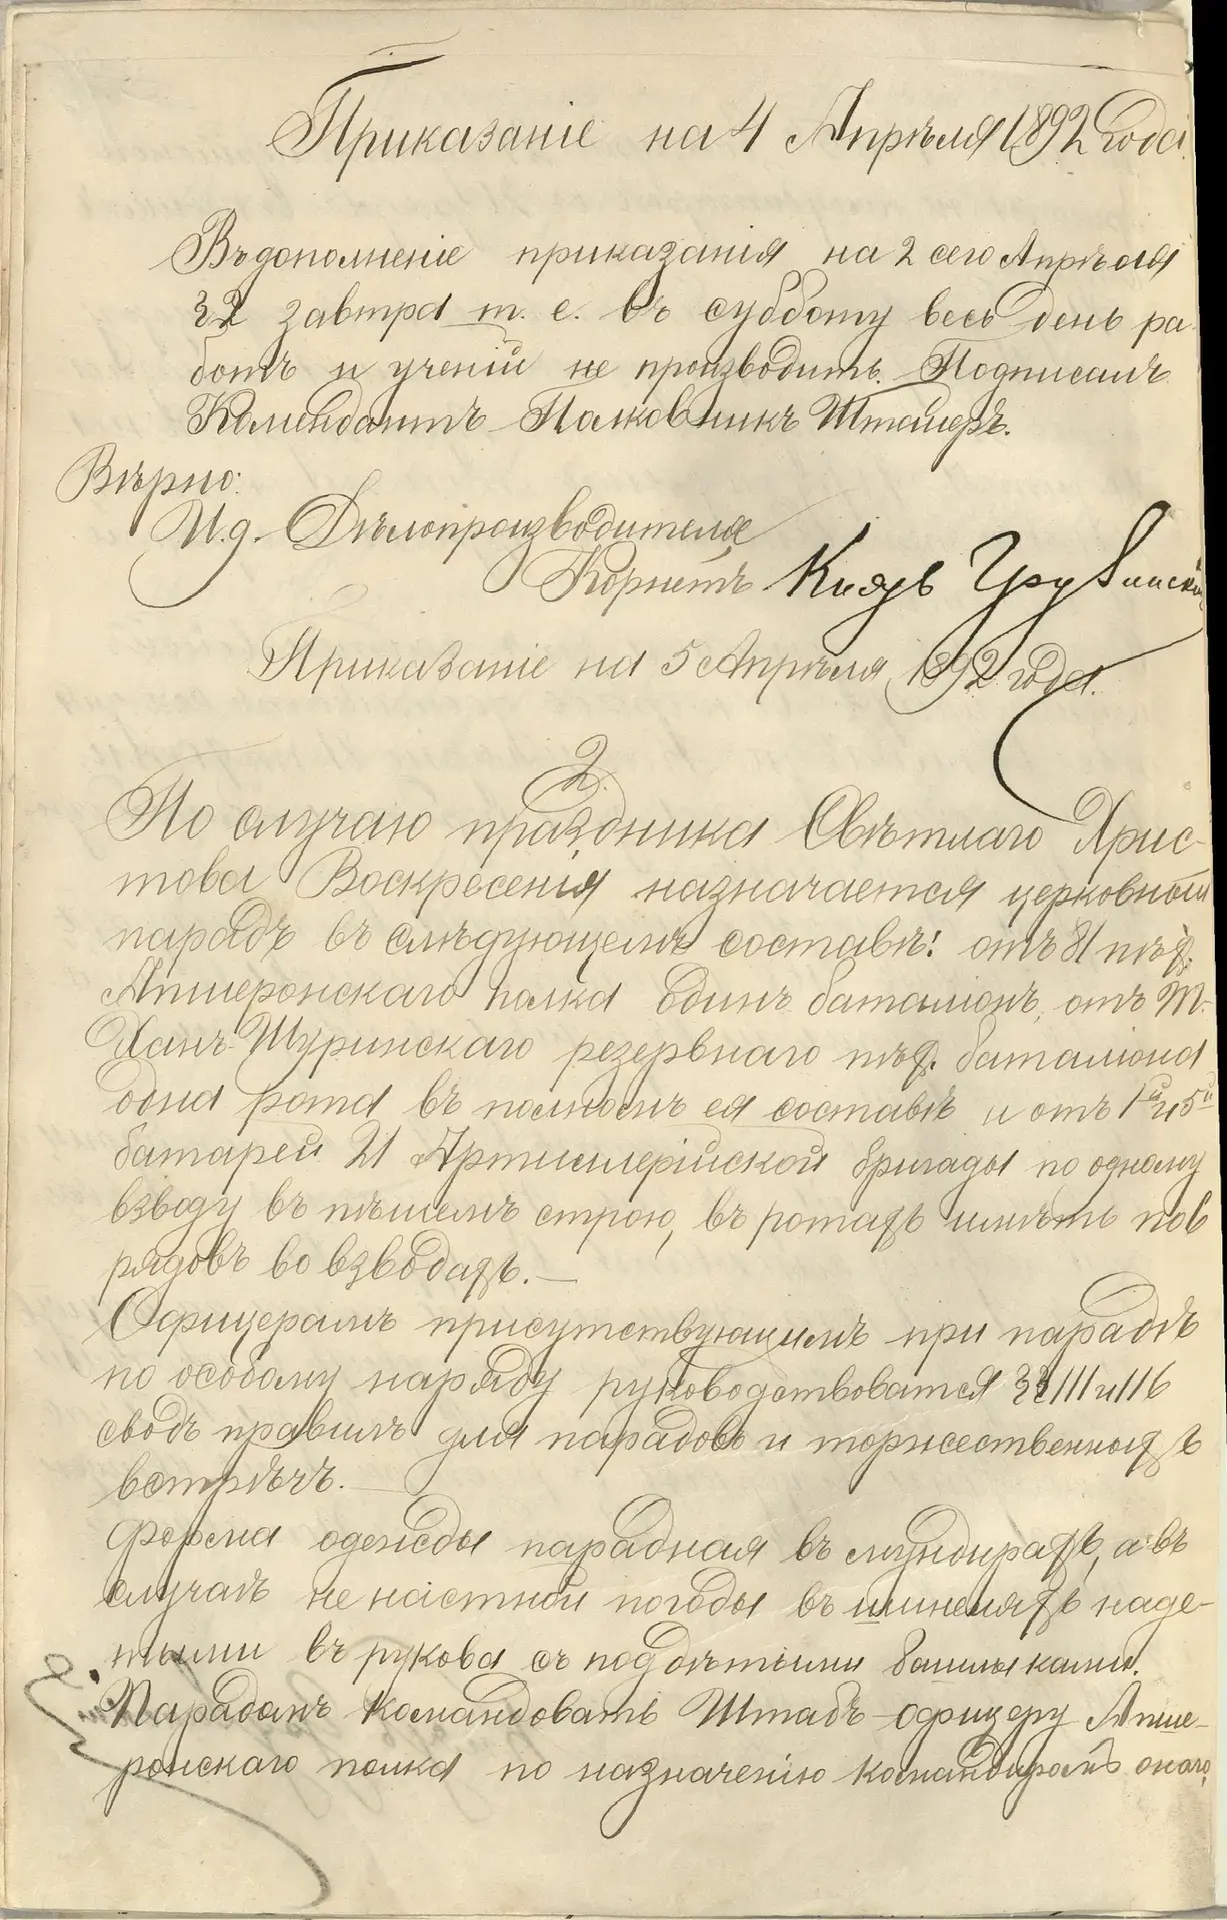 Приказаніе на 4 Апрѣля 1892 года.
Въ дополненіе приказанія на 2 сего Апрѣля
§2 завтра т. е. въ субботу весь день ра-
ботъ и ученій не производить. Подписалъ
Комендантъ Полковникъ Штемеръ.
Вѣрно:
И. д. Дѣлопроизводителя
Корнетъ Князь Грузинскій
Приказаніе на 5 Апрѣля 1892 года.
2.
По случаю праздника Свѣтлаго Хрис-
това Воскресенія назначается церковный
парадъ въ слѣдующемъ составѣ: отъ 81 пѣх.
Апшеронскаго полка одинъ баталіонъ, отъ Т.
Ханъ-Шуринскаго резервнаго пѣх. баталіона
одна рота въ полномъ ея составѣ и отъ 1й и 5й
батарей 21 Артиллерійской бригады по одному
взводу въ пѣшемъ строю, въ ротахъ имѣть по
рядовъ во взводахъ.—
Офицерамъ присутствующимъ при парадѣ
по особому наряду руководствоватся §§ 111 и 116
сводъ правилъ для парадовъ и торжественныхъ
встрѣчъ.—
Форма одежды парадная въ мундирахъ, а въ
случаѣ не настной погоды въ шинеляхъ наде-
тыми въ рукова съ поддѣтыми башлыками.
Парадомъ командовать Штабъ-офицеру Апше-
ронскаго полка по назначенію командиромъ онаго,